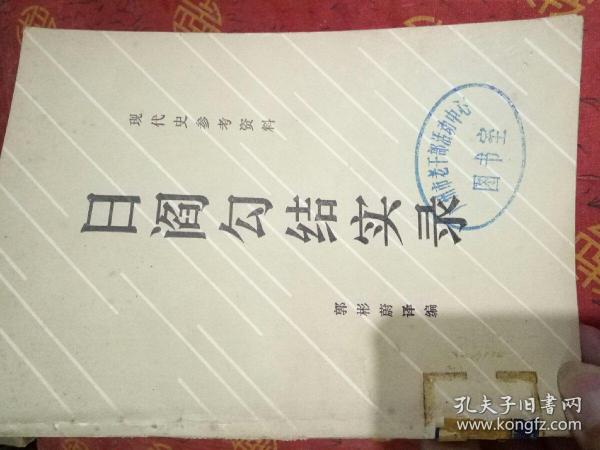 现代史参考资料
日阎勾结实录
郭彬蔚译编
市老干部活动中心
图书室
孔夫子旧书网
www.kongfz.com